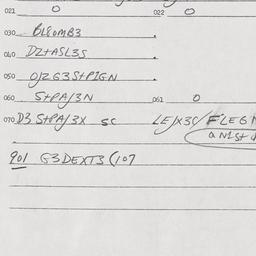 021 0 022 0
030 BLEOMB3
040 DZ+ASL3S
050 0J2G3S+PIGN
060 S+PAJ3N 061 0
070 D3 S+PAJ3X SC LEJX3S/FLEG
901 G3DEXT3 (107